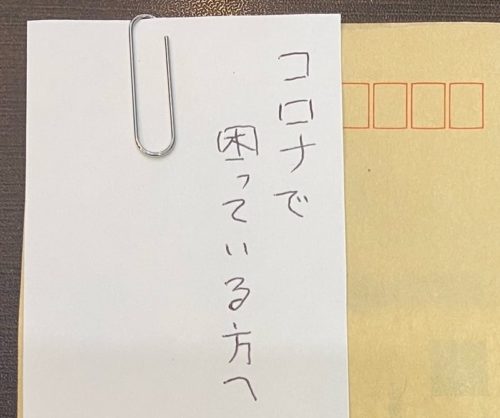 コロナで
困っている方へ